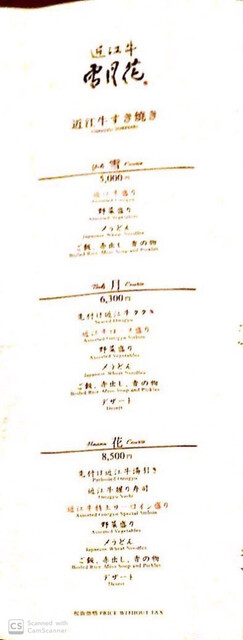 近江牛
雪月花
近江牛すき焼き
雪 Course
5,000円
野菜盛り
Assorted Vegetables
〆うどん
Japanese Wheat Noodles
ご飯、赤出し、香の物
Boiled Rice, Miso Soup and Pickles
月 Course
6,300円
先付け近江牛タタキ
Seared Omigyu
近江牛ロース盛り
Assorted Omigyu Sirloin
野菜盛り
Assorted Vegetables
〆うどん
Japanese Wheat Noodles
ご飯、赤出し、香の物
Boiled Rice, Miso Soup and Pickles
デザート
Dessert
Hana 花 Course
8,500円
先付け近江牛湯引き
Parboiled Omigyu
近江牛握り寿司
Omigyu Sushi
近江牛特上サーロイン盛り
Assorted Omigyu Special Sirloin
野菜盛り
Assorted Vegetables
〆うどん
Japanese Wheat Noodles
ご飯、赤出し、香の物
Boiled Rice, Miso Soup and Pickles
デザート
Dessert
税抜価格 PRICE WITHOUT TAX
CS Scanned with
CamScanner